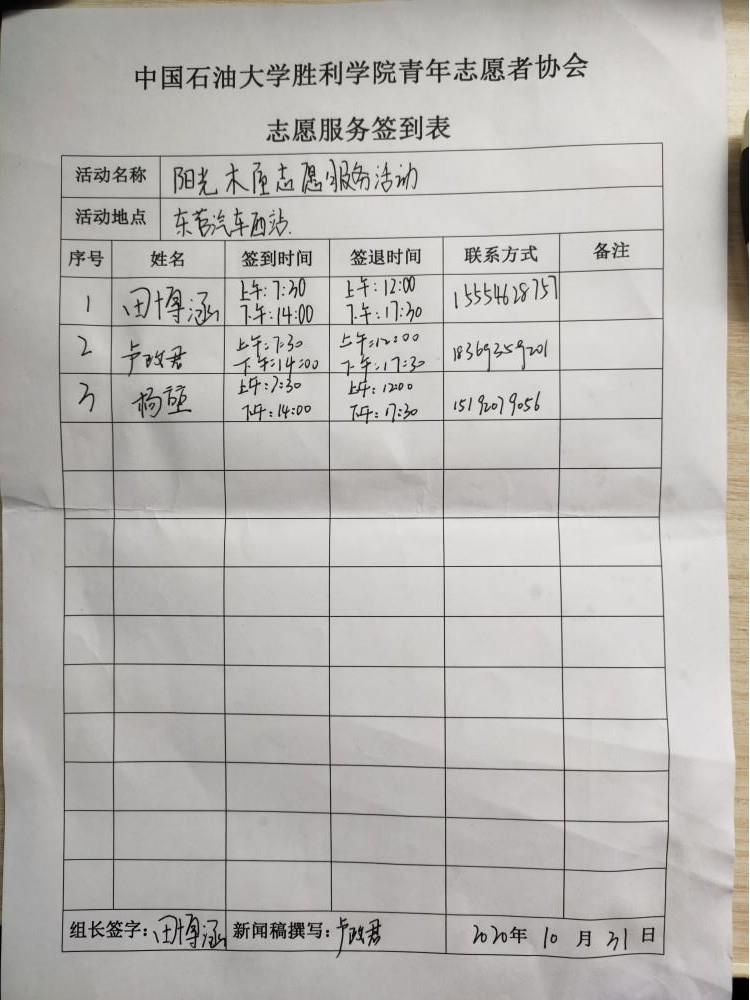 中国石油大学胜利学院青年志愿者协会
志愿服务签到表
活动名称 阳光木屋志愿服务活动
活动地点 东营汽车西站.
序号 姓名 签到时间 签退时间 联系方式 备注
1 田博涵 上午:7:30 上午:12:00 15554628757
下午:14:00 下午:17:30
2 卢政君 上午:7:30 上午:12:00 18369359201
下午:14:00 下午:17:30
3 杨堃 上午:7:30 上午:12:00 15192079056
下午:14:00 下午:17:30
组长签字:田博涵 新闻稿撰写:卢政君 2020年 10 月 31 日